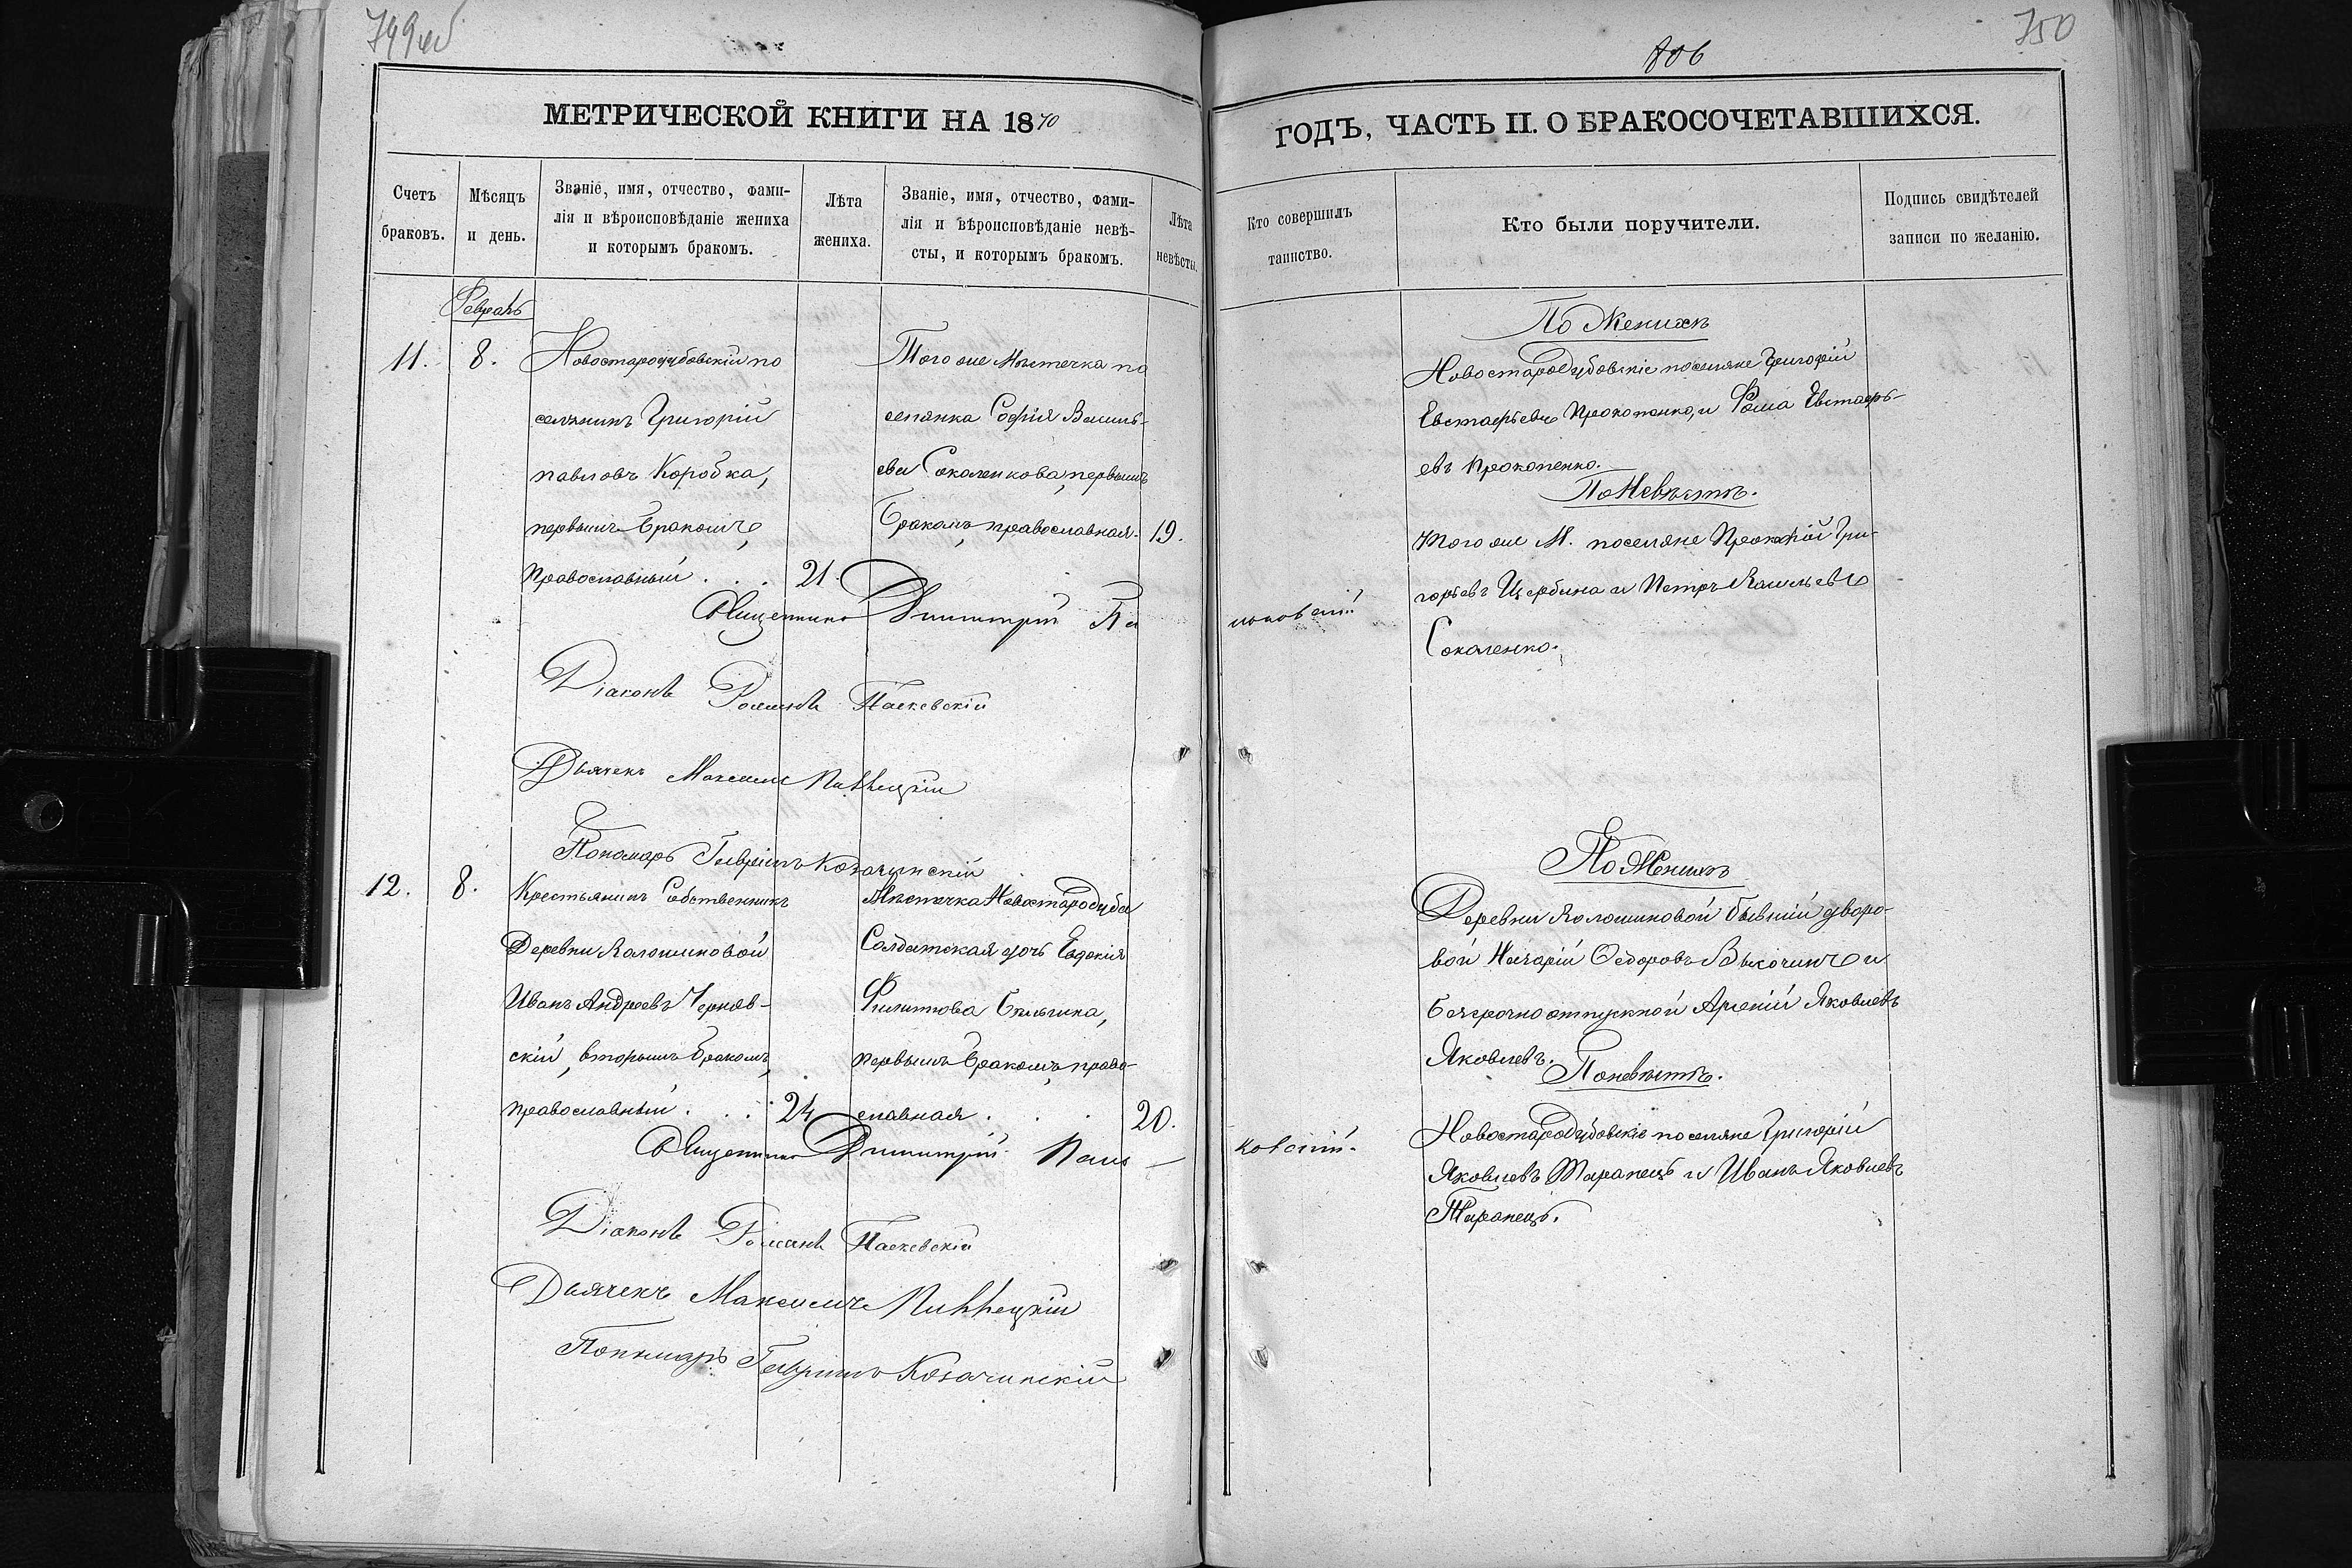 749 об
806
750
МЕТРИЧЕСКОЙ КНИГИ НА 1870
ГОДЪ, ЧАСТЬ II. О БРАКОСОЧЕТАВШИХСЯ.
Счетъ браковъ.
Мѣсяцъ и день.
Званіе, имя, отчество, фами-
лія и вѣроисповѣданіе жениха
и которымъ бракомъ.
Лѣта жениха.
Званіе, имя, отчество, фами-
лія и вѣроисповѣданіе невѣ-
сты, и которымъ бракомъ.
Лѣта невѣсты.
Кто совершилъ таинство.
Кто были поручители.
Подпись свидѣтелей
записи по желанію.
Февраль
11.
8.
Новостародубовскій по
селянинъ Григорій
Павловъ Коробка,
первымъ бракомъ,
православный . . . 21.
Того же Мѣстечка по
селянка Софія Василь-
ева Соколенкова, первымъ
бракомъ, православная. 19.
Священникъ Димитрій
новскій
Діаконъ Романъ Паскевскій
Дьячекъ Максимъ
Пономарь Гавріилъ Козачинскій
По Женихѣ
Новостародубовскіе поселяне Григорій
Евстафьевъ Прокопенко, и Фома Евстафь-
евъ Прокопенко.
По Невѣстѣ.
Того же М. поселяне Прокофій Гри-
горьевъ Щербина и Петръ Васильевъ
Соколенко.
12.
8.
Крестьянинъ Собственникъ
Деревни
Иванъ Андреевъ Черняв-
скій, вторымъ бракомъ,
православный . . . 24
Мѣстечка Новостародуба
Солдатская дочь Евдокія
Филиппова
первымъ бракомъ, право-
славная . . . 20.
Священникъ Димитрій
ковскій.
Діаконъ Романъ Паскевскій
Дьячекъ Максимъ
Пономарь Гавріилъ Козачинскій
По Женихѣ
Деревни бывшій дворо-
вой Назарій Ѳедоровъ Высочинъ и
безсрочноотпускной Арсеній Яковлевъ
Яковлевъ.
По невѣстѣ.
Новостародубовскіе поселяне Григорій
Яковлевъ Таранецъ и Иванъ Яковлевъ
Таранецъ.